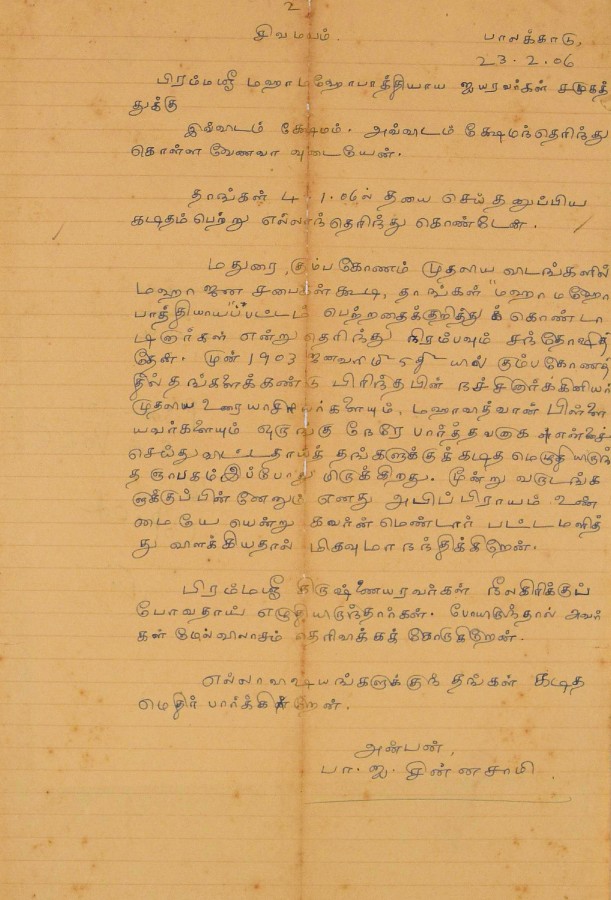 2
சிவமயம்.
பாலக்காடு,
23.2.06
பிரம்மஸ்ரீ மஹாமஹோபாத்தியாய ஐயரவர்கள் சமுகத்
துக்கு
இவ்விடம் க்ஷேமம். அவ்விடம் க்ஷேமந்தெரிந்து
கொள்ள வேணவா வுடையேன்.
தாங்கள் 4.1.06ல் தயை செய்தனுப்பிய
கடிதம்பெற்று எல்லாந்தெரிந்து கொண்டேன்.
மதுரை, கும்பகோணம் முதலிய விடங்களில்
மஹா ஜன சபைகள்கூடி, தாங்கள் "மஹா மஹோ
பாத்தியாய"ப்பட்டம் பெற்றதைக்குறித்துக் கொண்டா
டினார்கள் என்று தெரிந்து நிரம்பவும் சந்தோஷித்
தேன். முன் 1903 ஜனவரி மீ 5 உ யில் கும்பகோணத்
தில் தங்களைக்கண்டு பிரிந்தபின் நச்சினார்க்கினியர்
முதலிய உரையாசிரியர்களையும், மஹாவித்வான் பிள்ளை
யவர்களையும் ஒருங்கு நேரே பார்த்தவனாக என்னைச்
செய்துவிட்டதாய்த் தங்களுக்குக்கடித மெழுதியிருந்
த ஞாபகம் இப்போது மிருக்கிறது. மூன்று வருடங்க
ளுக்குப்பின்னேனும் எனது அபிப்பிராயம் உண்
மையே யென்று கவர்ன்மெண்டார் பட்டமளித்
து விளக்கியதால் மிகவுமாநந்திக்கிறேன்.
பிரம்மஸ்ரீ கிருஷ்ணையரவர்கள் நீலகிரிக்குப்
போவதாய் எழுதியிருந்தார்கள். போயிருந்தால் அவர்
கள் மேல்விலாசம் தெரிவிக்கக் கோருகிறேன்.
எல்லாவிஷயங்களுக்கும் தங்கள் கடித
மெதிர் பார்க்கின்றேன்.
அன்பன்,
பா. ஐ. சின்னசாமி